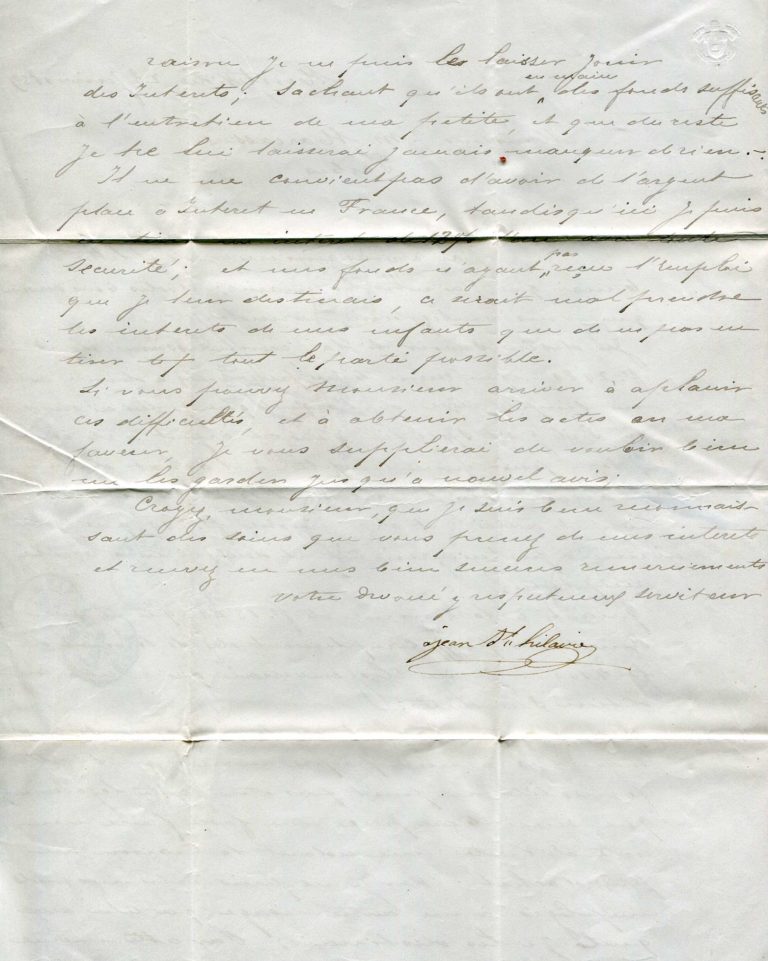 raison je ne puis les laisser jouir
des Interets; sachant qu'ils ont en main des fonds suffisants
à l'entretien de ma petite, et que du reste
je ne lui laisserai jamais manquer de rien.-
Il ne me convient pas d'avoir de l'argent
placé à Interet en France, tandis qu'ici je puis
interet de 12%
sécurité; et mes fonds n'ayant pas reçu l'emploi
que je leur destinais, ce serait mal prendre
les interets de mes enfants que de ne pas en
tirer tout le parté possible.
Si vous pouvez Monsieur arriver à aplanir
ces difficultés, et à obtenir les actes en ma
faveur, je vous supplierai de vouloir bien
me les garder jusqu'à nouvel avis.
Croyez, monsieur, que je suis bien reconnais-
sant des soins que vous prenez de mes interets
et recevez en mes bien sincères remerciements
votre dévoué y respectueux serviteur
Jean St hilaire